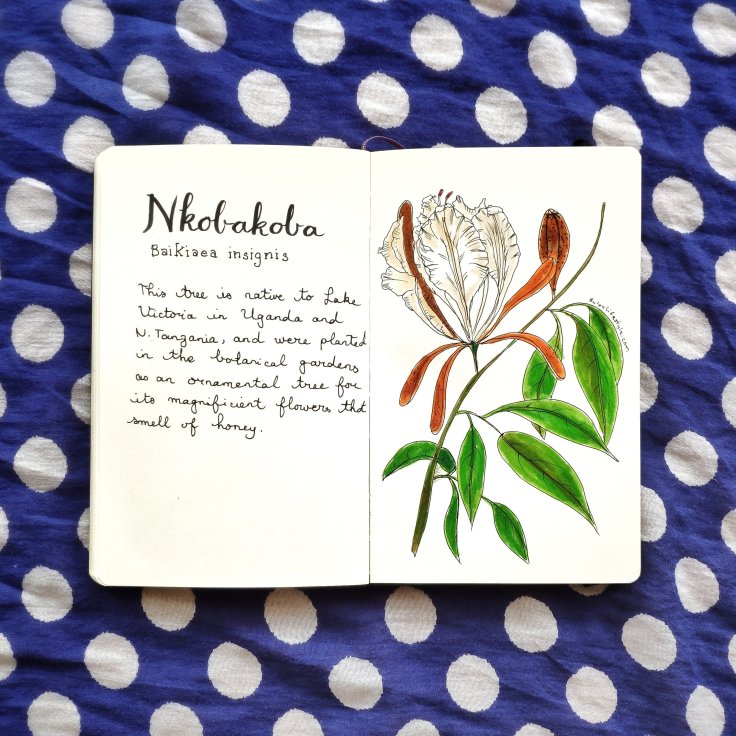 Nkobakoba
Baikiaea insignis
This tree is native to Lake
Victoria in Uganda and
N. Tanzania, and were planted
in the botanical gardens
as an ornamental tree for
its magnificient flowers that
smell of honey.